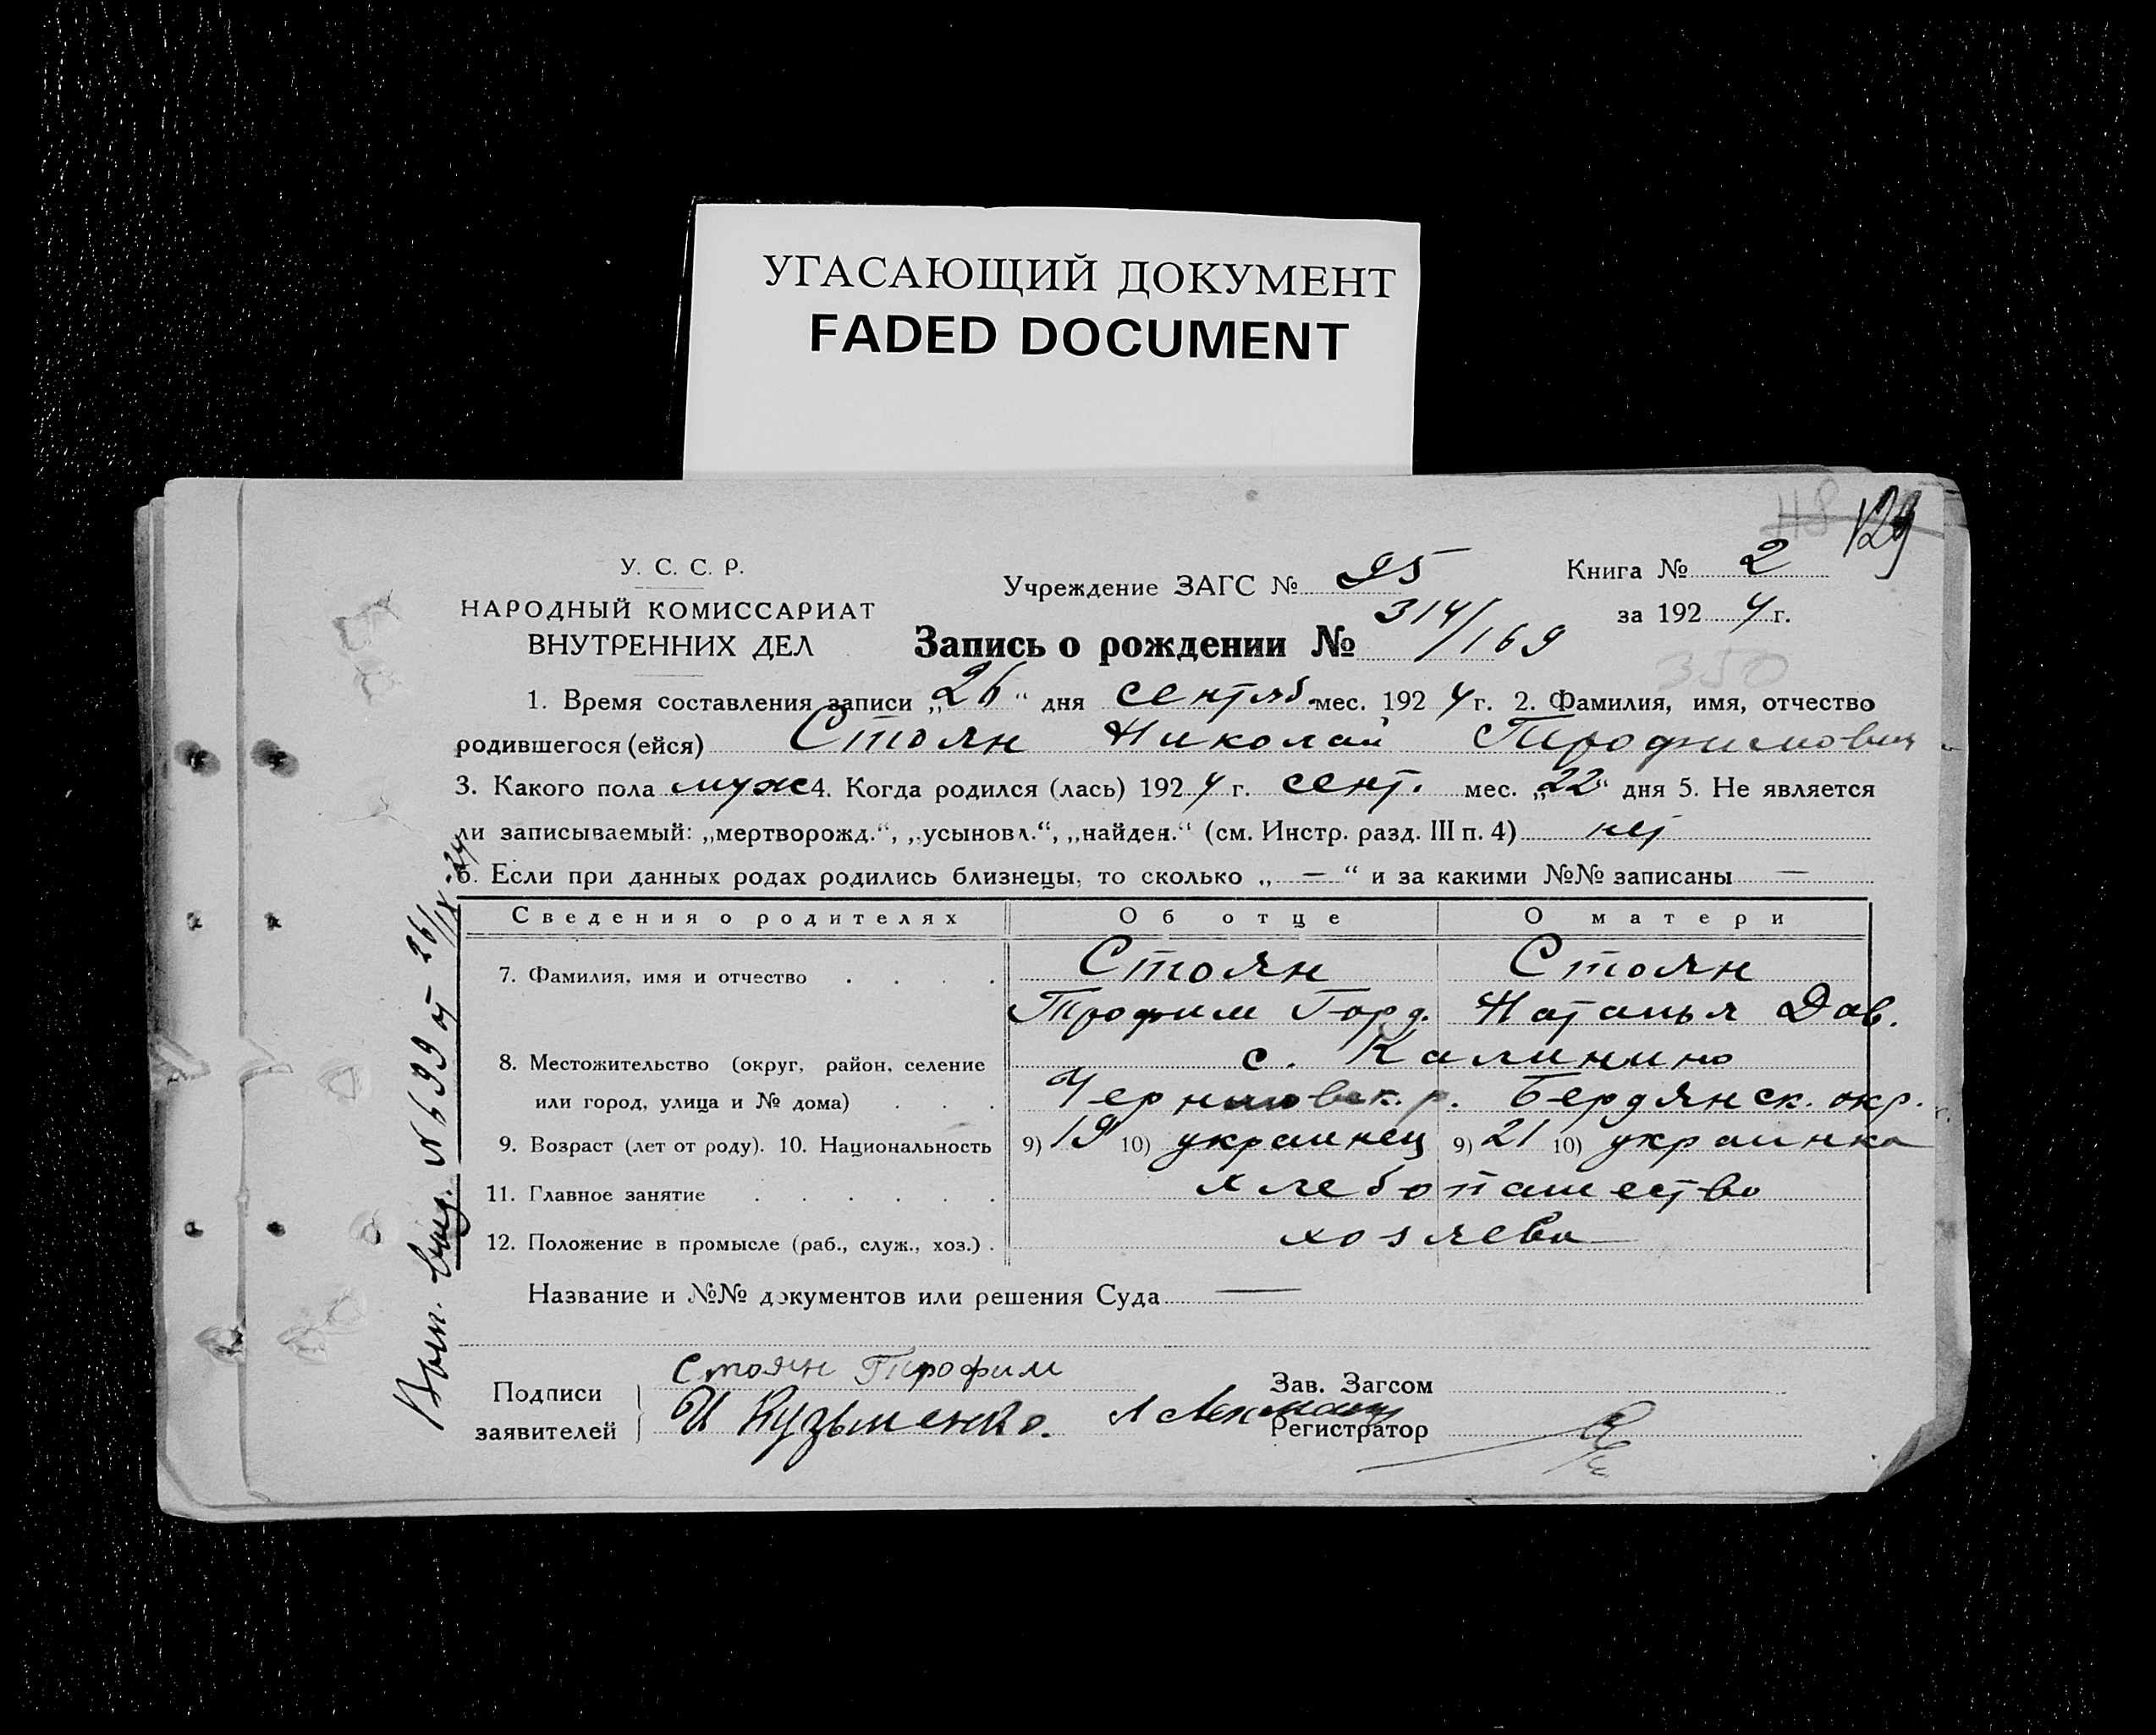 УГАСАЮЩИЙ ДОКУМЕНТ
FADED DOCUMENT
118 129
У. С. С. Р.
НАРОДНЫЙ КОМИССАРИАТ
ВНУТРЕННИХ ДЕЛ
Учреждение ЗАГС № 95
Книга № 2
за 1924 г.
Запись о рождении № 314/169
350
1. Время составления записи „26“ дня сентяб. мес. 1924 г. 2. Фамилия, имя, отчество
родившегося (ейся) Стоян Николай Трофимович
3. Какого пола муж 4. Когда родился (лась) 1924 г. сент. мес. „22“ дня 5. Не является
ли записываемый: „мертворожд.“, „усыновл.“, „найден.“ (см. Инстр. разд. III п. 4) нет
6. Если при данных родах родились близнецы, то сколько „ — “ и за какими №№ записаны —
Сведения о родителях Об отце О матери
7. Фамилия, имя и отчество . . . . Стоян Стоян
Трофим Горд. Наталья Дав.
8. Местожительство (округ, район, селение с. Калинино
или город, улица и № дома) . . . Черниговск. р. Бердянск. окр.
9. Возраст (лет от роду). 10. Национальность 9) 19 10) украинец 9) 21 10) украинка
11. Главное занятие . . . . . . хлебопашество
12. Положение в промысле (раб., служ., хоз.) . хозяева
Название и №№ документов или решения Суда —
Подписи
заявителей
Стоян Трофим
И Кузьменко.
Зав. Загсом
Регистратор
Вып. выд. № 699 от 26/IX-24